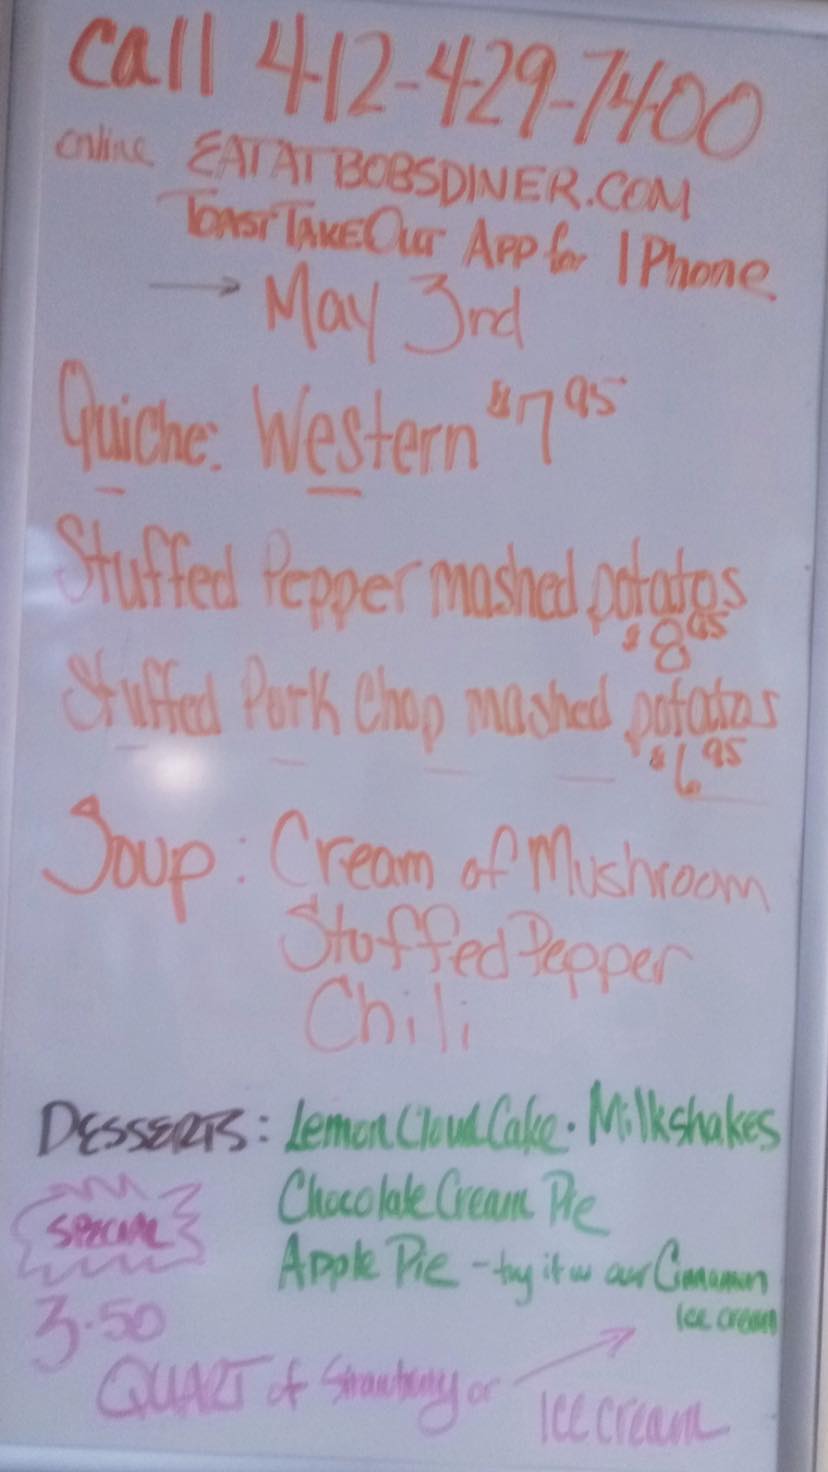 Call 412-429-7400
online EATATBOBSDINER.COM
TOAST TAKE OUT APP for IPhone
→ May 3rd
Quiche: Western $7.95
Stuffed Pepper mashed potatos
$8.95
Stuffed Pork Chop mashed potatos
$6.95
Soup: Cream of Mushroom
Stoffed Pepper
Chili
DESSERTS: Lemon Cloud Cake · Milkshakes
Chocolate Cream Pie
SPECIAL
Apple Pie - try it w our Cinnamon
Ice cream
3.50
QUART of Strawberry or
Ice cream